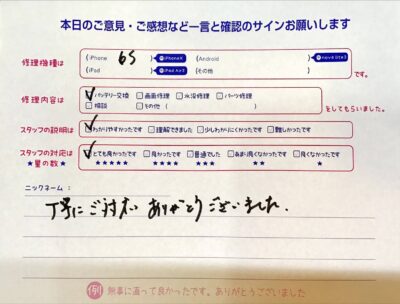 本日のご意見・ご感想など一言と確認のサインお願いします
修理機種は
(iPhone 6S ) (iPhoneX (Android )nova lite3
(iPod )iPad Air2 (その他 )
です。
修理内容は
バッテリー交換 画面修理 水没修理 パーツ修理
相談 その他( )
をしてもらいました。
スタッフの説明は わかりやすかったです 理解できました 少しわかりにくかったです 難しかったです
スタッフの対応は とても良かったです 良かったです 普通でした あまり良くなかったです 良くなかったです
★星の数★ ★★★★★ ★★★★ ★★★ ★★ ★
ニックネーム:
丁寧にご対応 ありがとうございました.
例 無事に直って良かったです。ありがとうございました